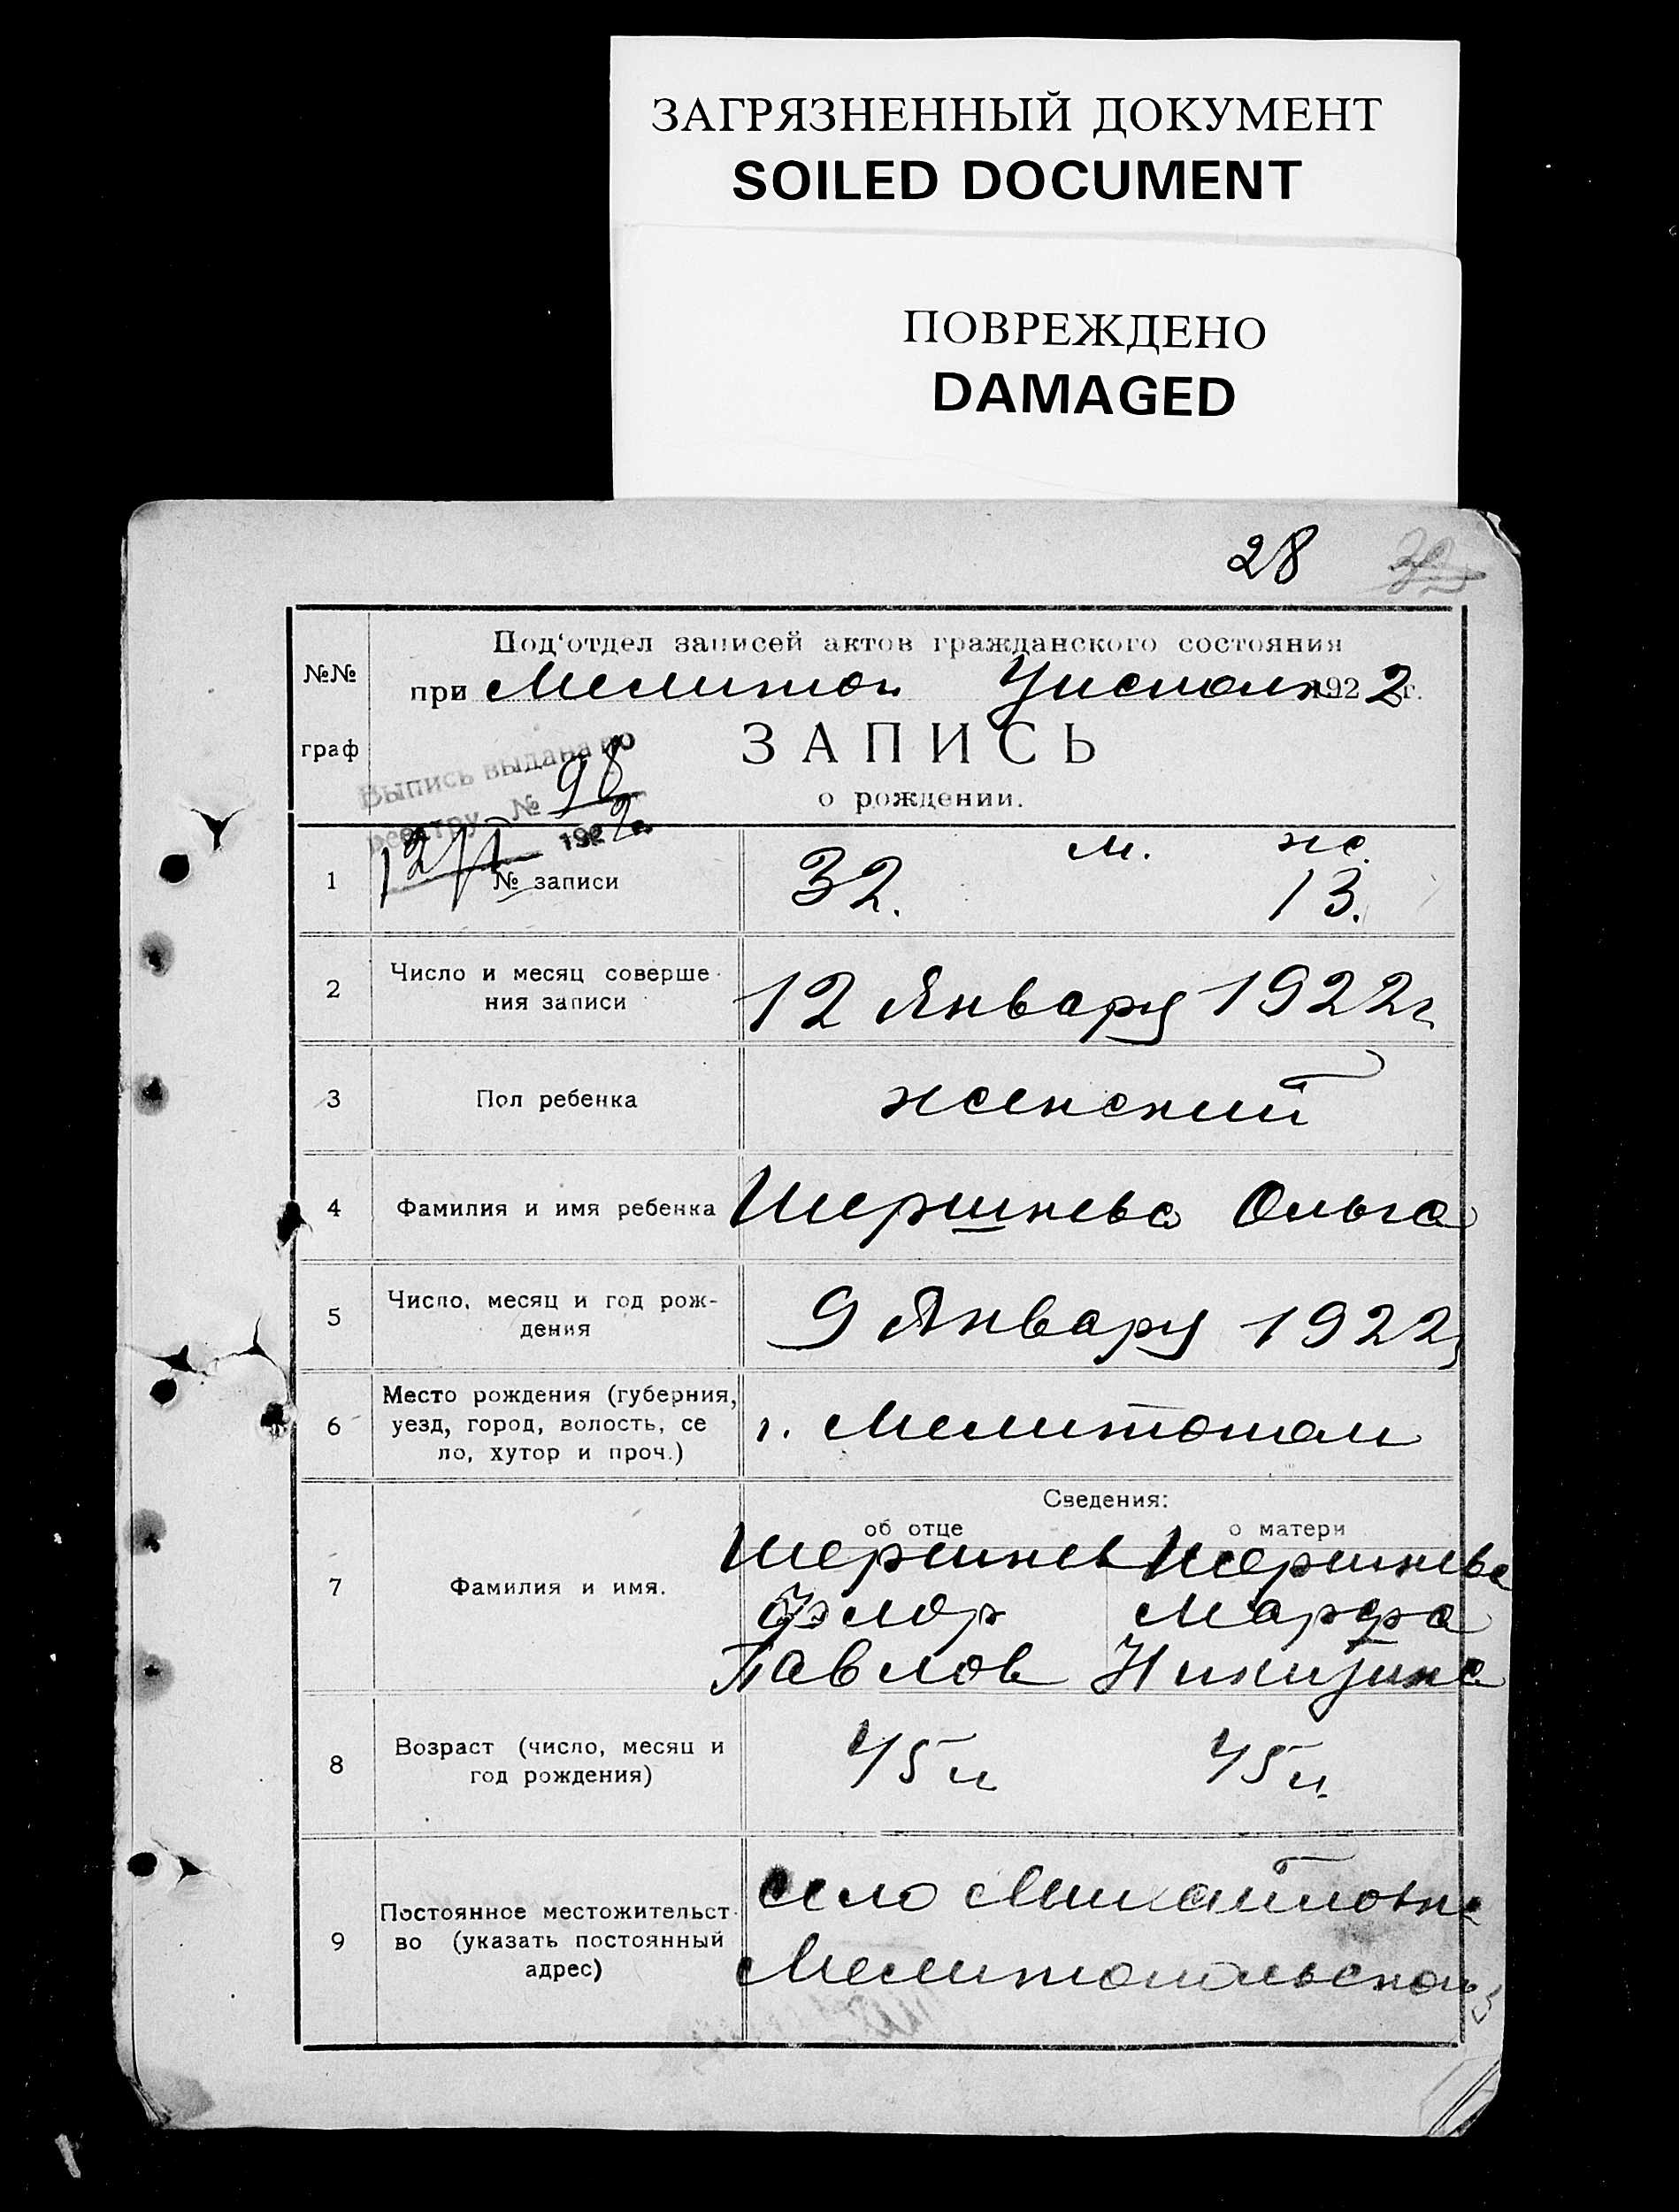 ЗАГРЯЗНЕННЫЙ ДОКУМЕНТ
SOILED DOCUMENT
ПОВРЕЖДЕНО
DAMAGED
28
№№ граф
Под‘отдел записей актов гражданского состояния
при Мелитоп Уисполк 1922 г.
ЗАПИСЬ
о рождении.
Выпись выдана по
реестру № 98
12/I 1922
1 № записи 32. м. ж. 13.
2 Число и месяц соверше-
ния записи 12 Январy 1922 г
3 Пол ребенка женский
4 Фамилия и имя ребенка Шершнева Ольга
5 Число, месяц и год рож-
дения 9 Январy 1922
6 Место рождения (губерния,
уезд, город, волость, се
ло, хутор и проч.) г. Мелитополь
Сведения:
об отце о матери
7 Фамилия и имя. Шершнев Шершнева
Флор Марфа
Павлов Никитина
8 Возраст (число, месяц и
год рождения) 45 л 45 л.
9 Постоянное местожительст-
во (указать постоянный
адрес) село Михайловка
Мелитопольской